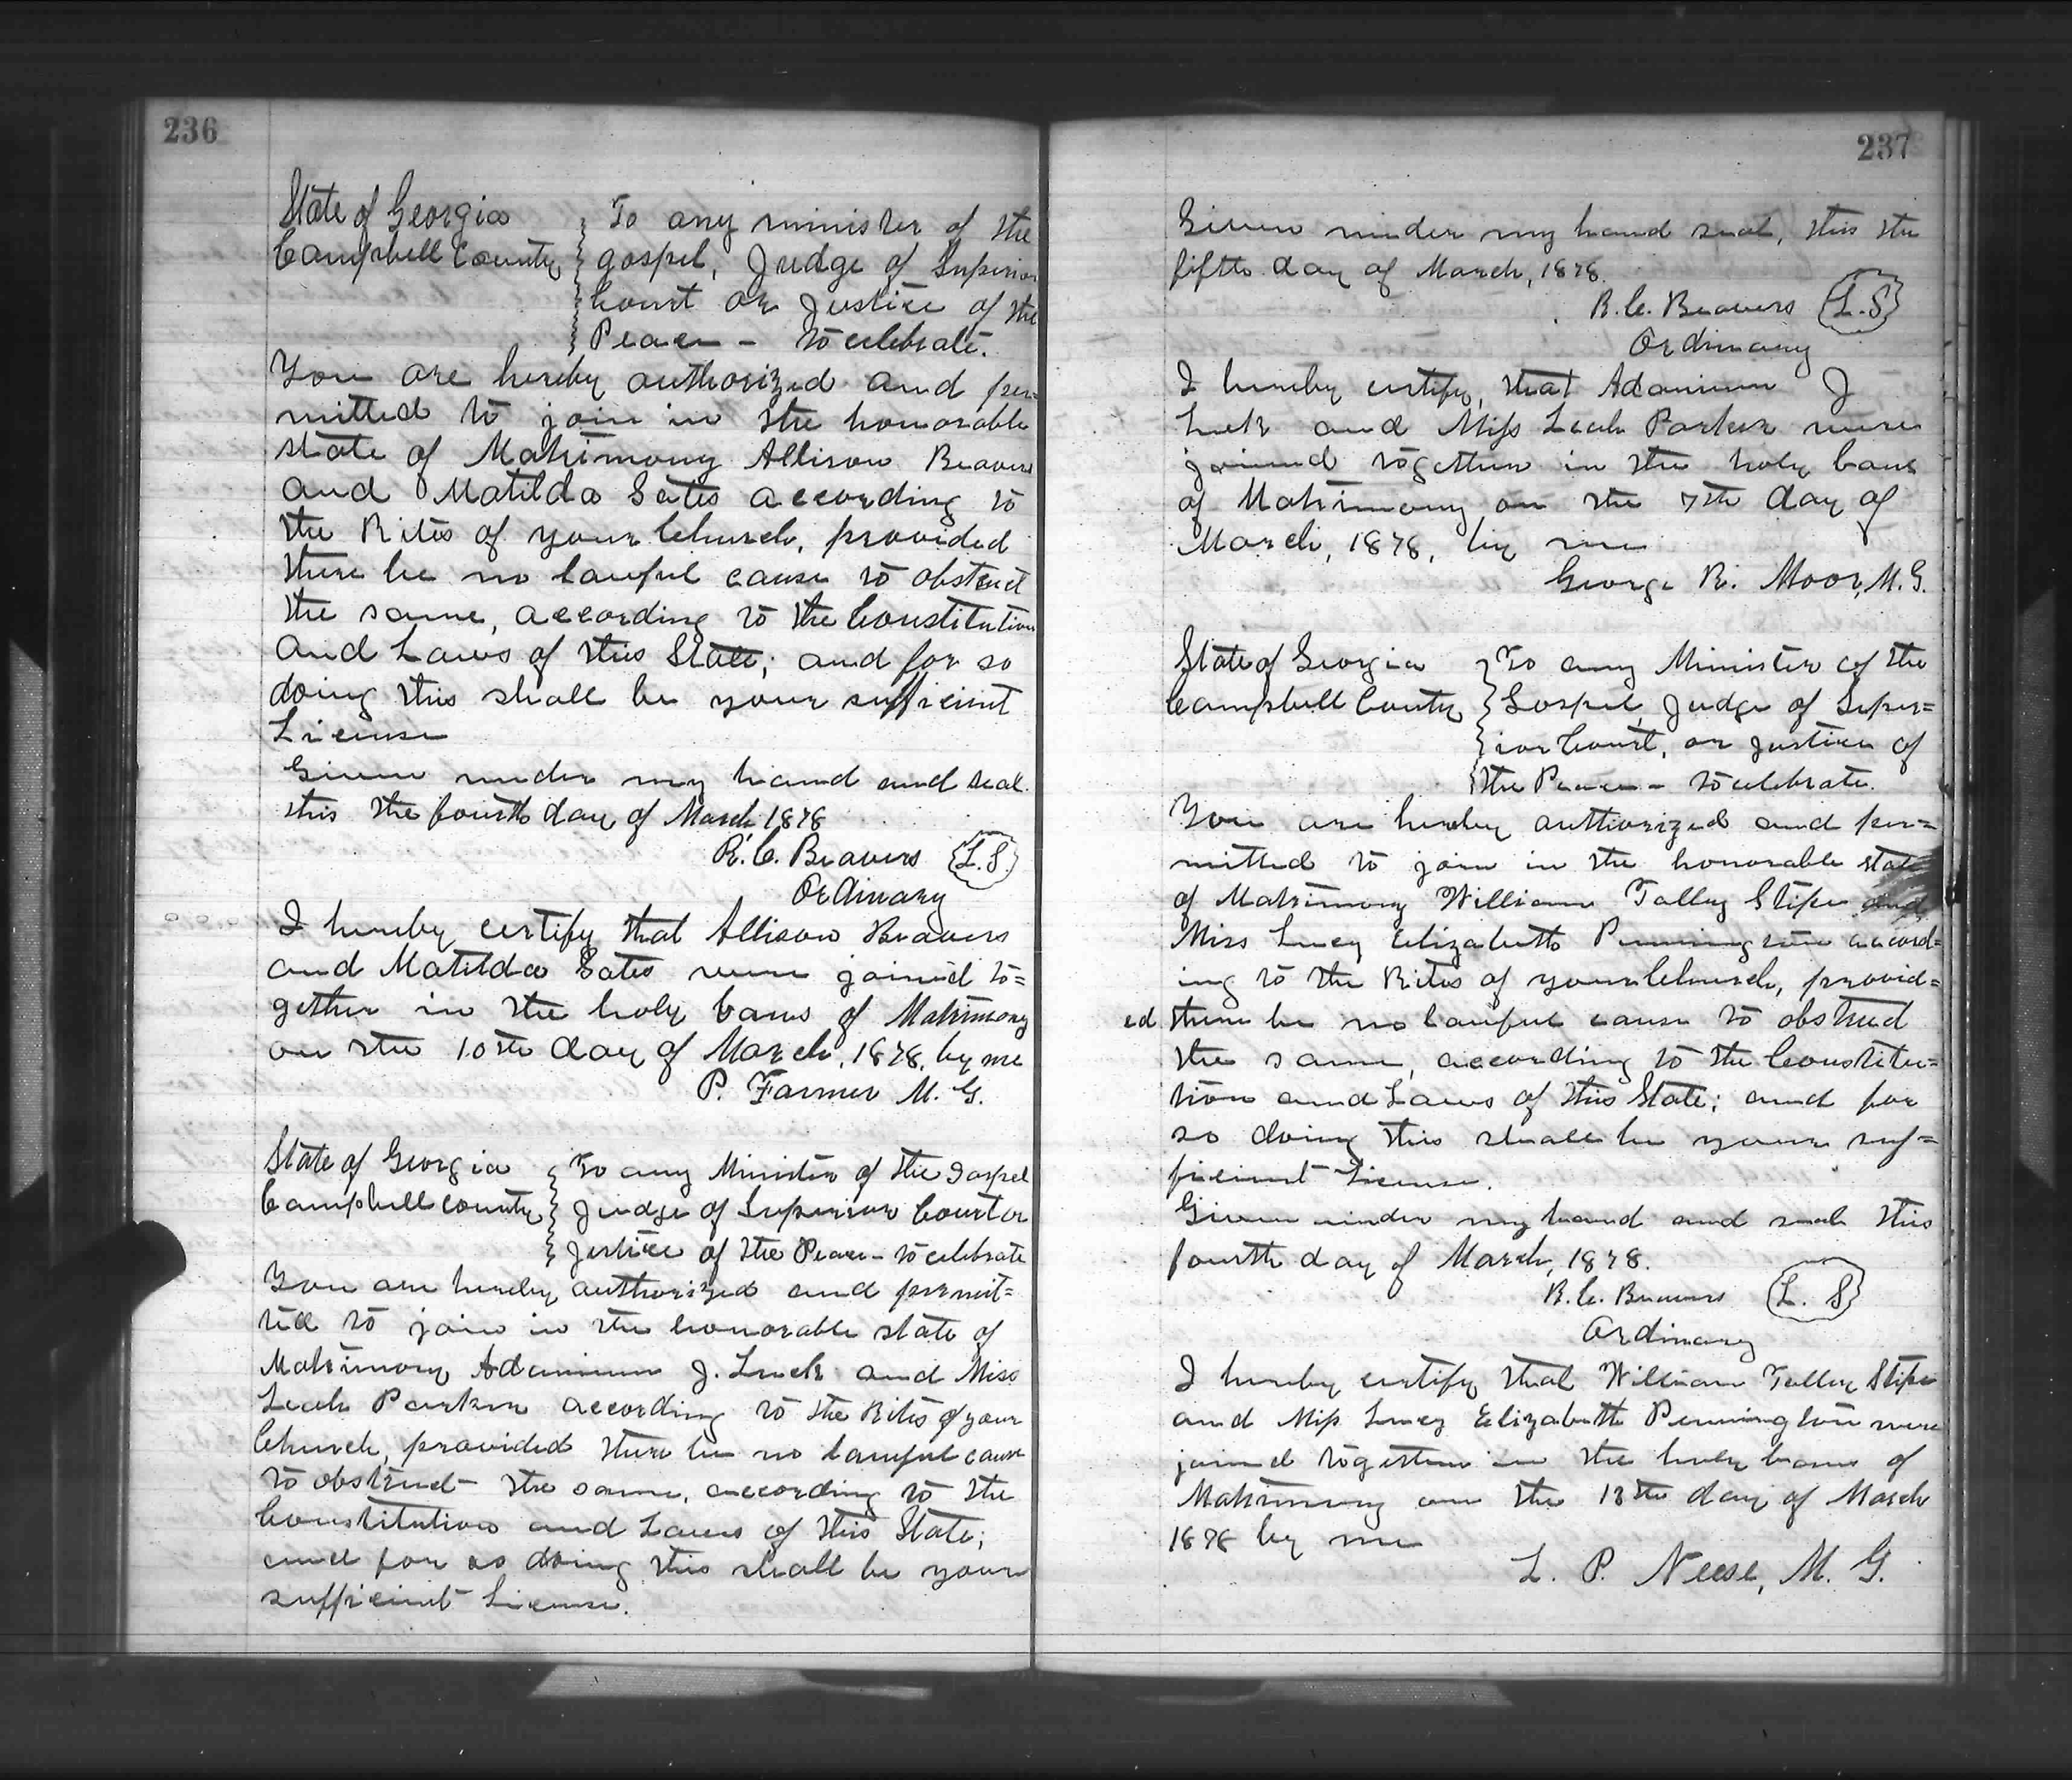 236
State of Georgia
Campbell County
To any minister of the
gospel, Judge of Superior
Court or Justice of the
Peace - to celebrate.
You are hereby authorized and per=
mitted to join in the honorable
state of Matrimony Allison Beavers
and Matilda Gates according to
the Rites of your Church, provided
there be no lawful cause to obstruct
the same, according to the Constitution
and Laws of this State; and for so
doing this shall be your sufficient
License
Given under my hand and seal
this the fourth day of March 1878
R. C. Beavers L.S.
Ordinary
I hereby certify that Allison Beavers
and Matilda Gates were joined to=
gether in the holy bans of Matrimony
on the 10th day of March, 1878, by me
P. Farmer M. G.
State of Georgia
Campbell County
To any Minister of the Gospel
Judge of Superior Court or
Justice of the Peace - to celebrate
You are hereby authorized and permit=
ted to join in the honorable state of
Matrimony J. Luck and Miss
Leah Parker according to the Rites of your
Church, provided there be no lawful cause
to obstruct the same, according to the
Constitution and Laws of this State;
and for so doing this shall be your
sufficient License.
237
Given under my hand seal, this the
fifth day of March, 1878.
R. C. Beavers L.S
Ordinary
I hereby certify, that J
Luck and Miss Leah Parker were
joined together in the holy bans
of Matrimony on the 7th day of
March, 1878, by me
George R. Moor, M.G.
State of Georgia
Campbell County
To any Minister of the
Gospel, Judge of Super=
ior Court, or Justice of
the Peace - to celebrate.
You are hereby authorized and per=
mitted to join in the honorable state
of Matrimony William Talley Stipe and
Miss Lucy Elizabeth Pennington accord=
ing to the Rites of your Church, provid=
ed there be no lawful cause to obstruct
the same, according to the Constitu=
tion and Laws of this State; and for
so doing this shall be your suf=
ficient License.
Given under my hand and seal this
fourth day of March, 1878.
R. C. Beavers L. S
Ordinary
I hereby certify that William Talley Stipe
and Miss Lucy Elizabeth Pennington were
joined together in the holy bans of
Matrimony on the 13th day of March
1878 by me
L. P. Neese, M. G.